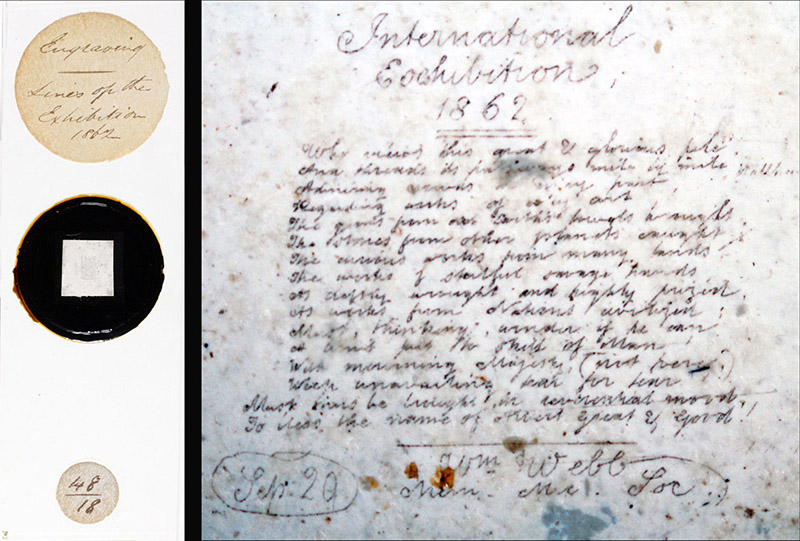 Engraving
Lines of the
Exhibition
1862
48
18
International
Exhibition,
1862
Who views this great & glorious pile
And threads its passages mile by mile
Admiring crowds in every part,
Regarding works of every art
The from our Earth's bowels
The from other planets caught
The curious works from many lands
The works of skilful savage hands
As deftly wrought and highly prized,
As works from Nations civilized;
Must, thinking, wonder if he can
A limit put to skill of Man
With mourning Majesty, (not here.)
Weep unavailing tear for tear
Must be brought, in reverential mood,
To bless the name of Albert Great & Good!
Wm Webb
Sep. 20
Mem. Mic. Soc.